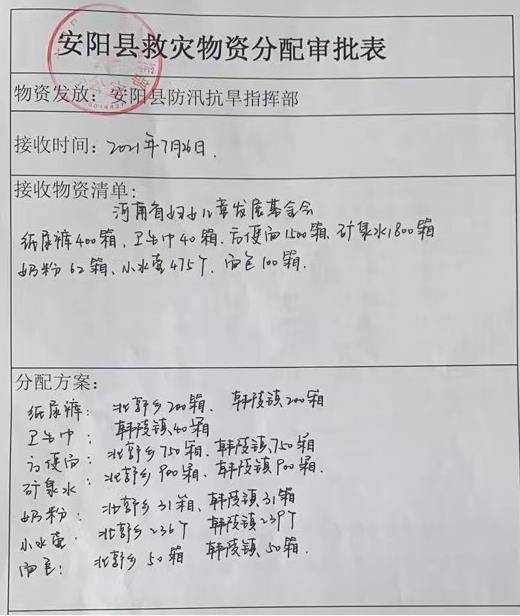 安阳县救灾物资分配审批表
物资发放：安阳县防汛抗旱指挥部
接收时间：2021年7月26日.
接收物资清单：
河南省妇女儿童发展基金会
纸尿裤400箱、卫生巾40箱、方便面1500箱、矿泉水1800箱
奶粉62箱、小水壶475个、面包100箱.
分配方案：
纸尿裤：北郭乡200箱、韩陵镇200箱
卫生巾：韩陵镇40箱
方便面：北郭乡750箱、韩陵镇750箱
矿泉水：北郭乡900箱、韩陵镇900箱.
奶粉：北郭乡31箱、韩陵镇31箱
小水壶：北郭乡236个 韩陵镇239个
面包：北郭乡50箱 韩陵镇50箱.